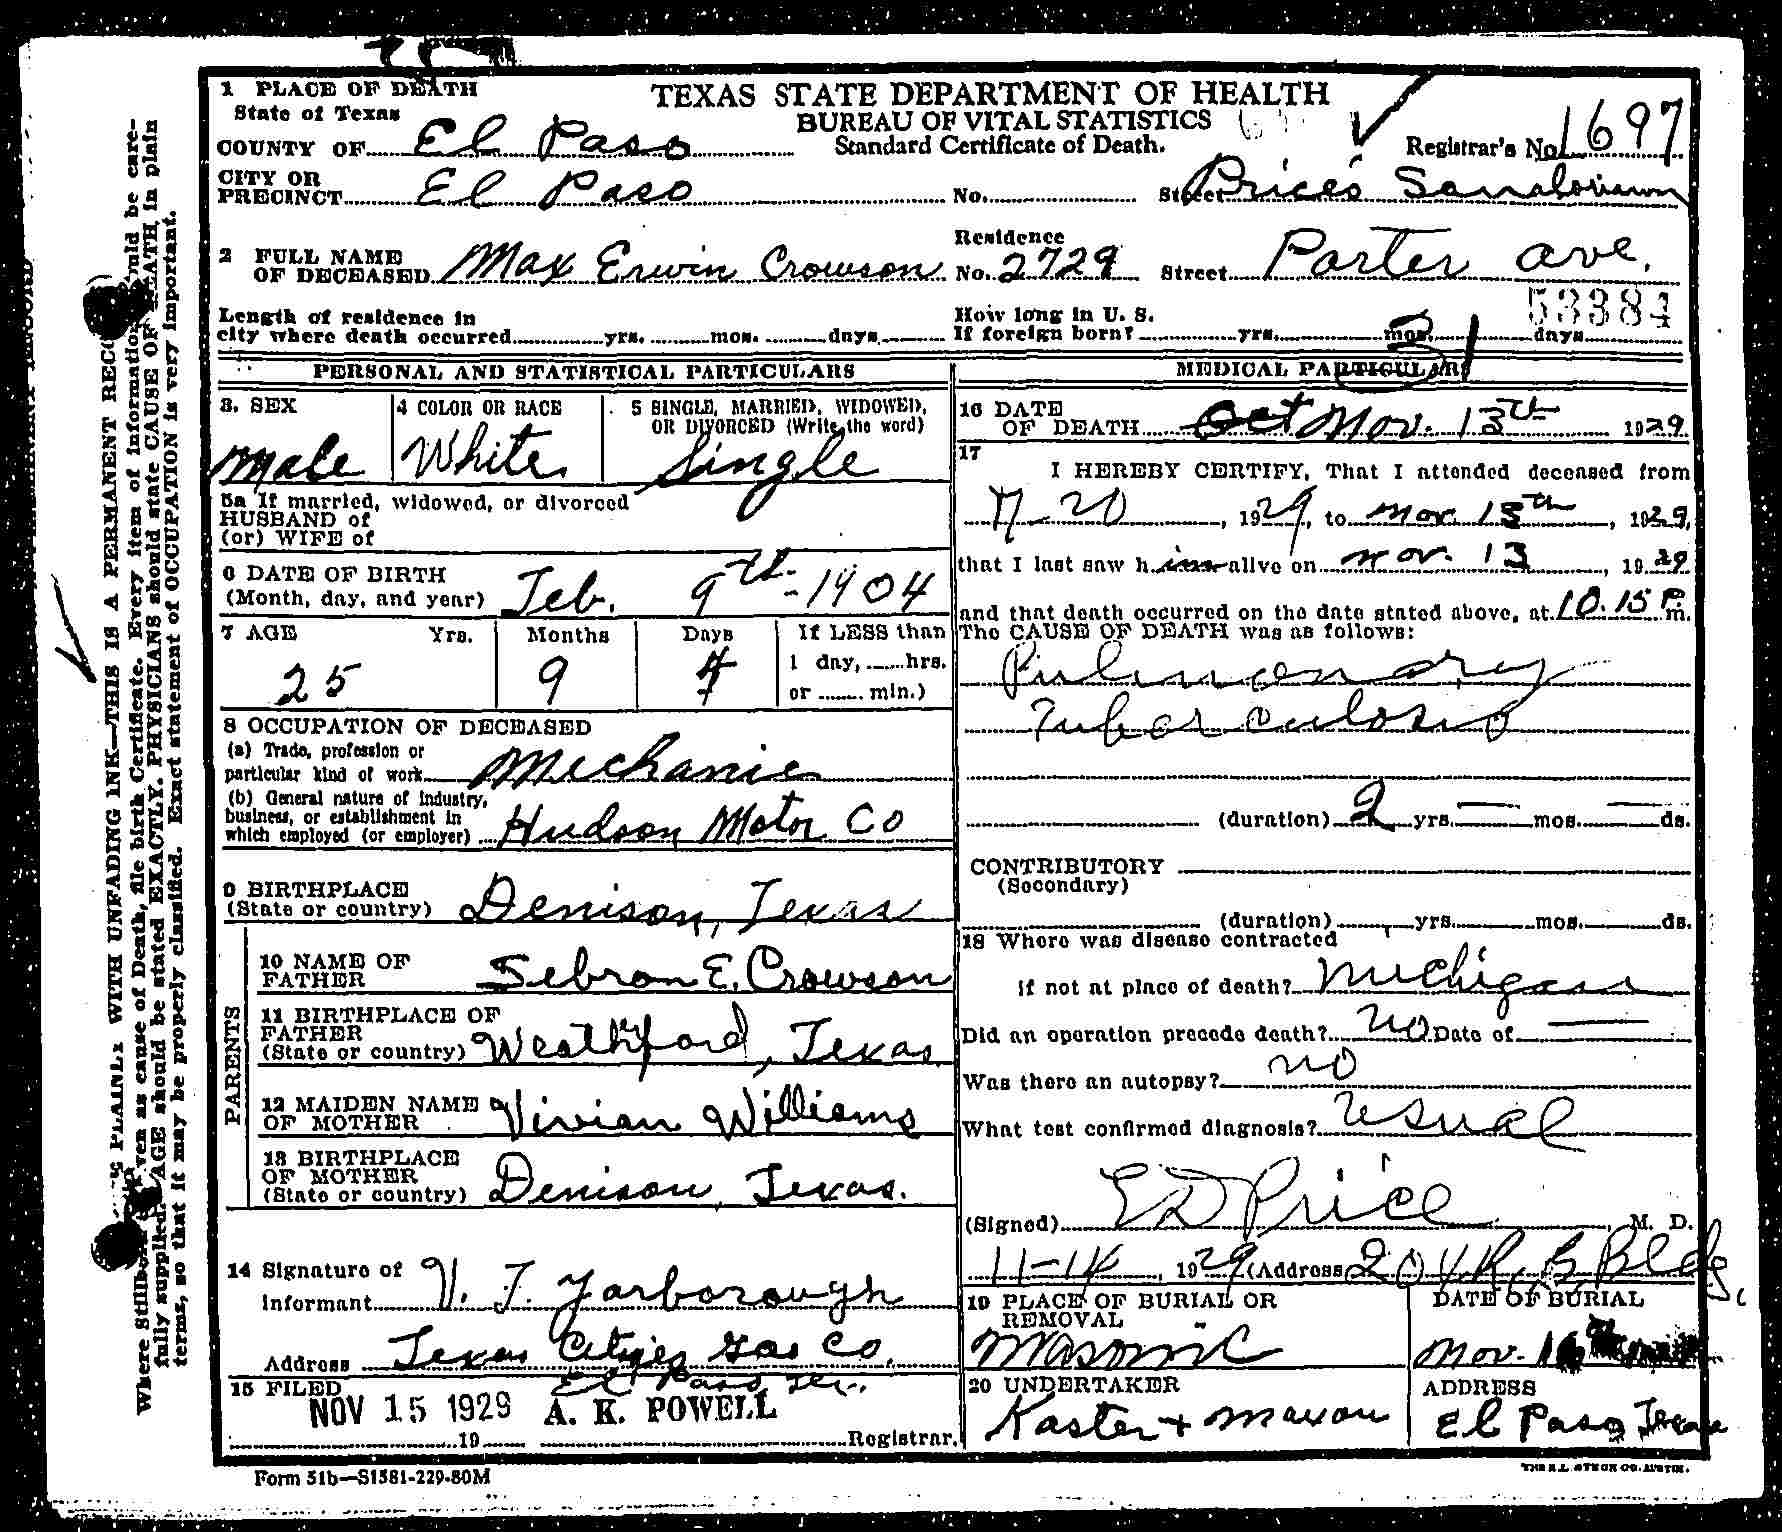 1 PLACE OF DEATH
State of Texas
TEXAS STATE DEPARTMENT OF HEALTH
BUREAU OF VITAL STATISTICS
Standard Certificate of Death.
COUNTY OF El Paso
Registrar's No. 1697
CITY OR PRECINCT El Paso No. Street Price's Sanatorium
2 FULL NAME OF DECEASED Max Erwin Crowson Residence No. 2729 Street Porter Ave.
53384
Length of residence in city where death occurred yrs. mos. days How long in U. S. If foreign born? yrs. mos. days
31
PERSONAL AND STATISTICAL PARTICULARS
3. SEX Male
4 COLOR OR RACE White
5 SINGLE, MARRIED, WIDOWED, OR DIVORCED (Write the word) Single
5a If married, widowed, or divorced
HUSBAND of
(or) WIFE of
6 DATE OF BIRTH
(Month, day, and year) Feb. 9th - 1904
7 AGE Yrs. 25 Months 9 Days 4 If LESS than 1 day, hrs. or min.)
8 OCCUPATION OF DECEASED
(a) Trade, profession or particular kind of work Mechanic
(b) General nature of industry, business, or establishment in which employed (or employer) Hudson Motor Co
9 BIRTHPLACE
(State or country) Denison, Texas
PARENTS
10 NAME OF FATHER Sebron E. Crowson
11 BIRTHPLACE OF FATHER
(State or country) Weathford, Texas
12 MAIDEN NAME OF MOTHER Vivian Williams
13 BIRTHPLACE OF MOTHER
(State or country) Denison, Texas.
14 Signature of Informant V. T. Yarborough
Address Texas Cities Gas Co.
El Paso, Tex.
15 FILED
NOV 15 1929 A. K. POWELL
19 Registrar.
MEDICAL PARTICULARS
16 DATE OF DEATH Oct Nov. 13th 1929
17 I HEREBY CERTIFY, That I attended deceased from
7-20, 1929, to Nov. 13th, 1929,
that I last saw him alive on Nov. 13, 1929
and that death occurred on the date stated above, at 10.15 P. m.
The CAUSE OF DEATH was as follows:
Pulmonary
Tuberculosis
(duration) 2 yrs. — mos. — ds.
CONTRIBUTORY
(Secondary)
(duration) yrs. mos. ds.
18 Where was disease contracted
if not at place of death? Michigan
Did an operation precede death? No Date of —
Was there an autopsy? No
What test confirmed diagnosis? Usual
(Signed) E D Price, M. D.
11-14, 1929 (Address 204 R. B. Bldg.
19 PLACE OF BURIAL OR REMOVAL
Masonic
DATE OF BURIAL
Nov. 16
20 UNDERTAKER
Kaster & Maxon
ADDRESS
El Paso Texas
Form 51b—S1581-229-80M
PLAINLY WITH UNFADING INK—THIS IS A PERMANENT RECORD
Every item of information should be carefully supplied. AGE should be stated EXACTLY. PHYSICIANS should state CAUSE OF DEATH in plain terms, so that it may be properly classified. Exact statement of OCCUPATION is very important.